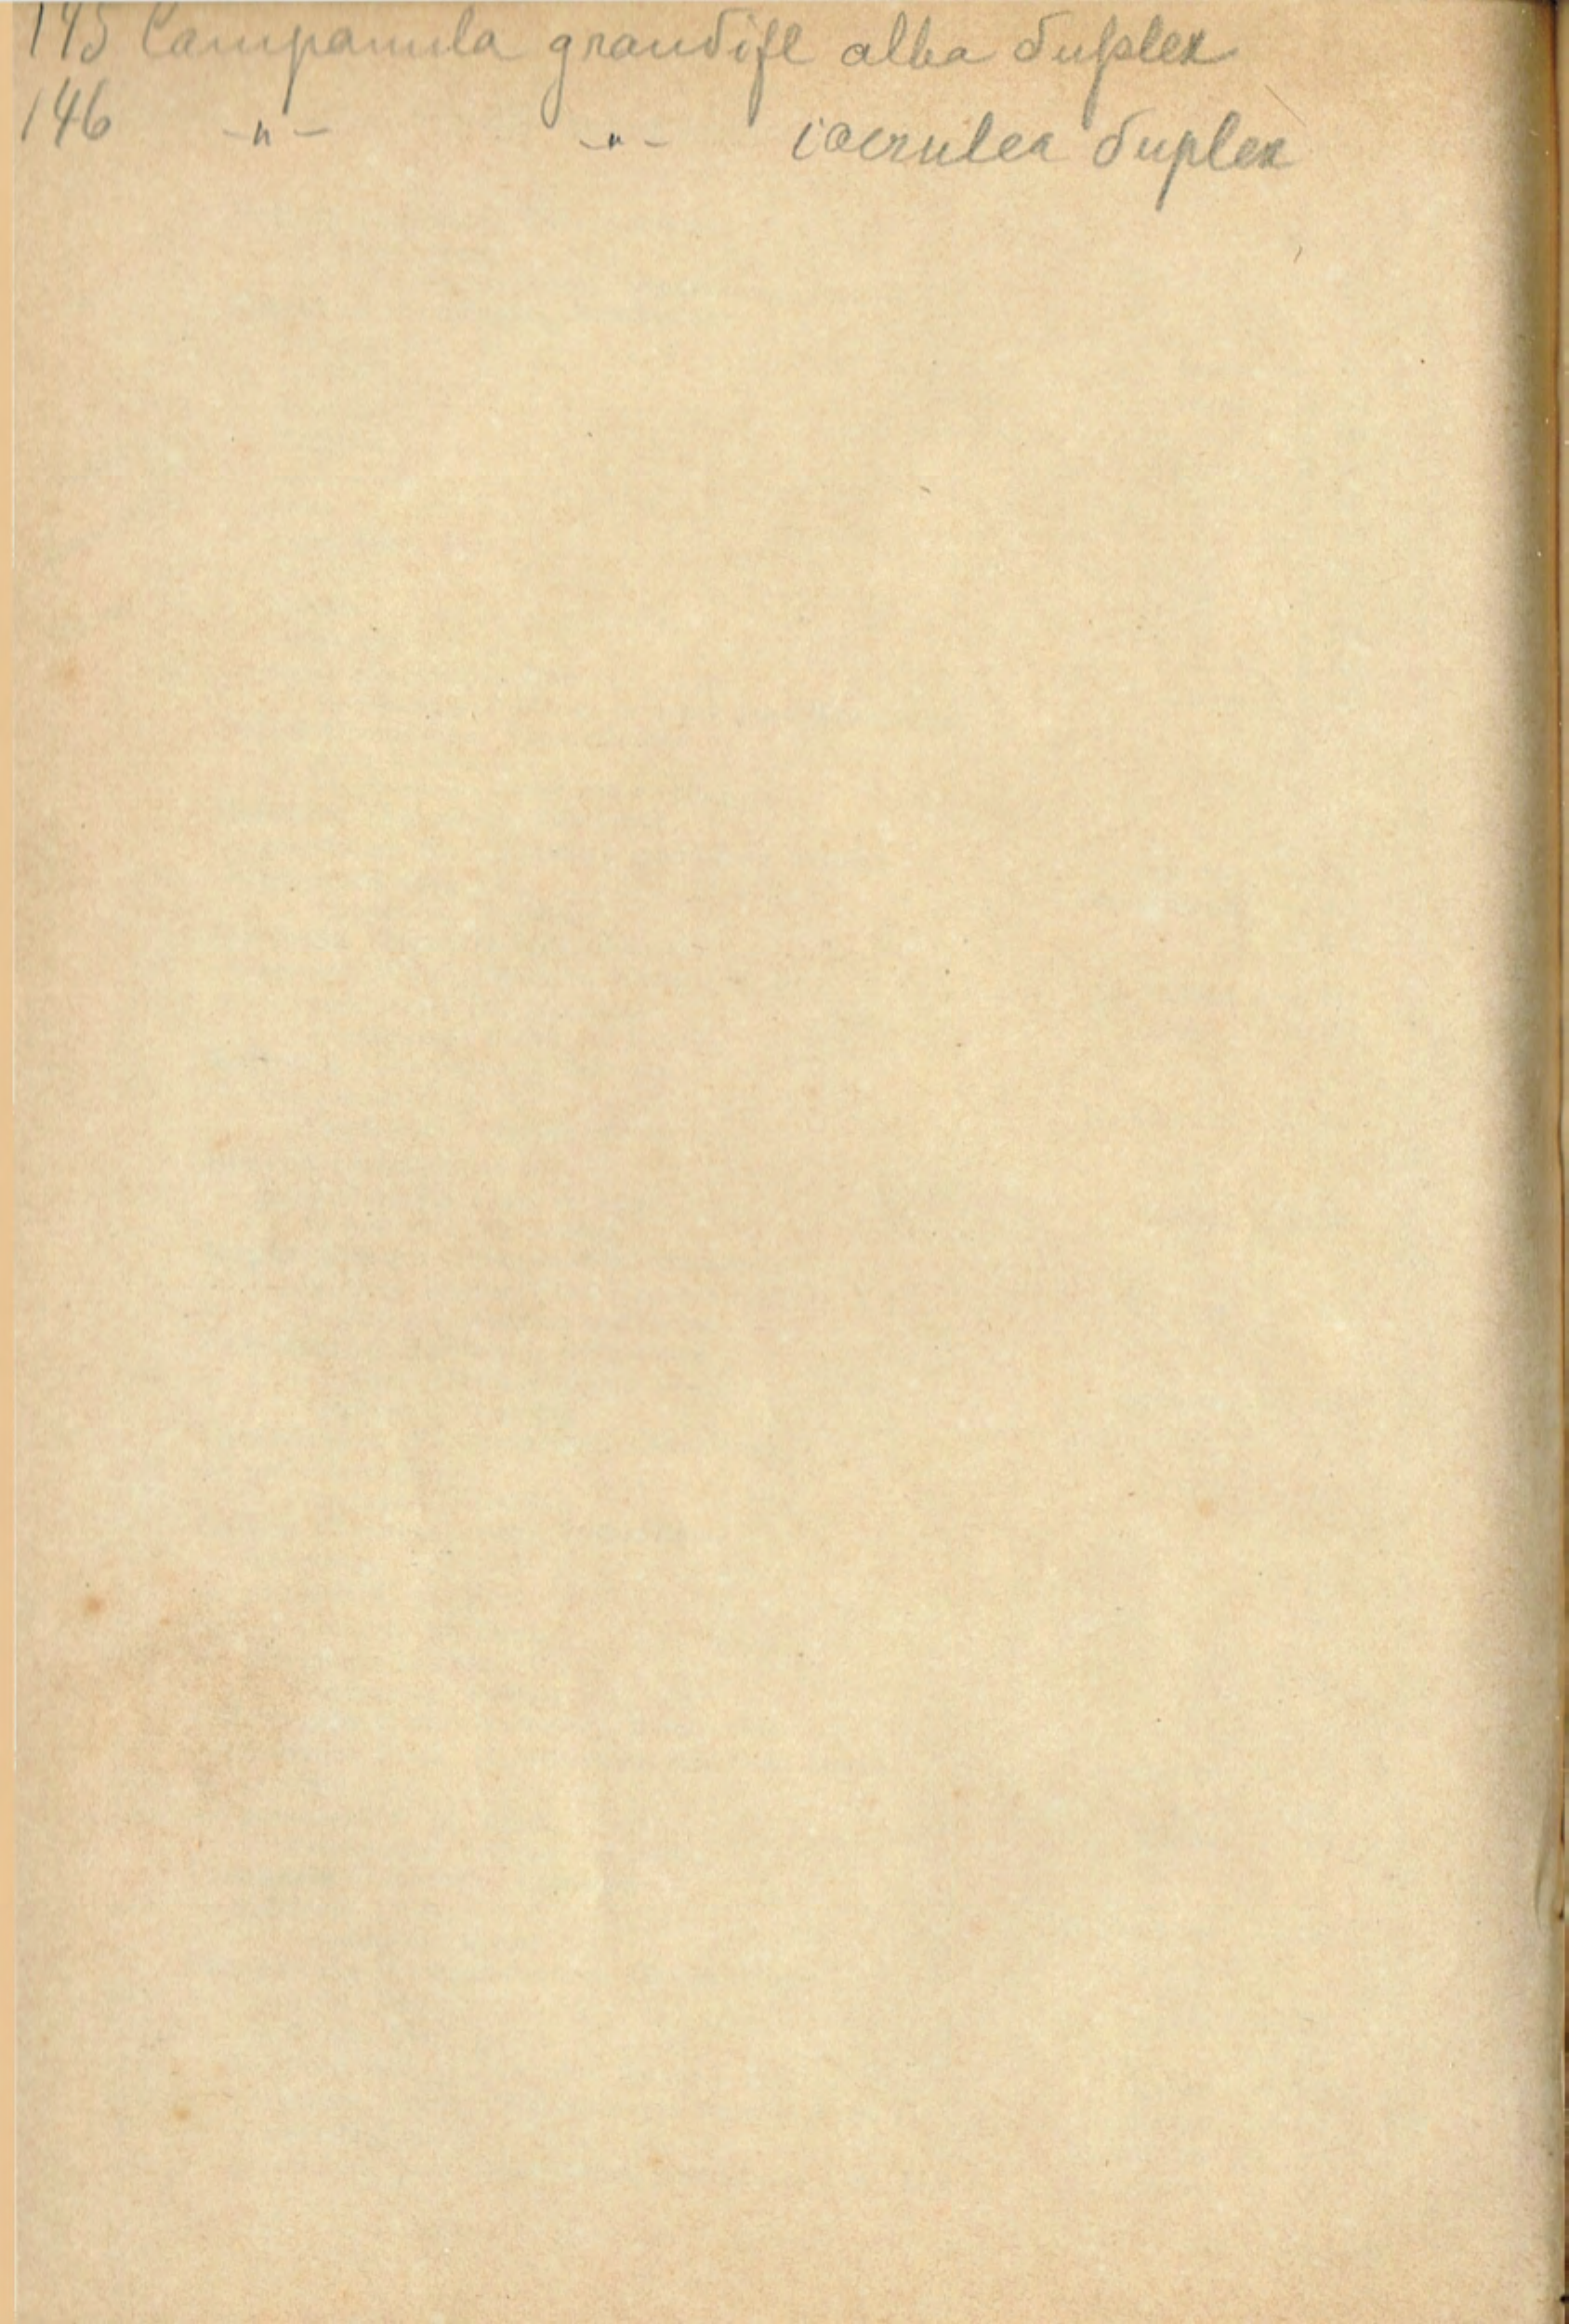 145 Campanula grandifl alba duplex
146 -"- -"- coerulea duplex